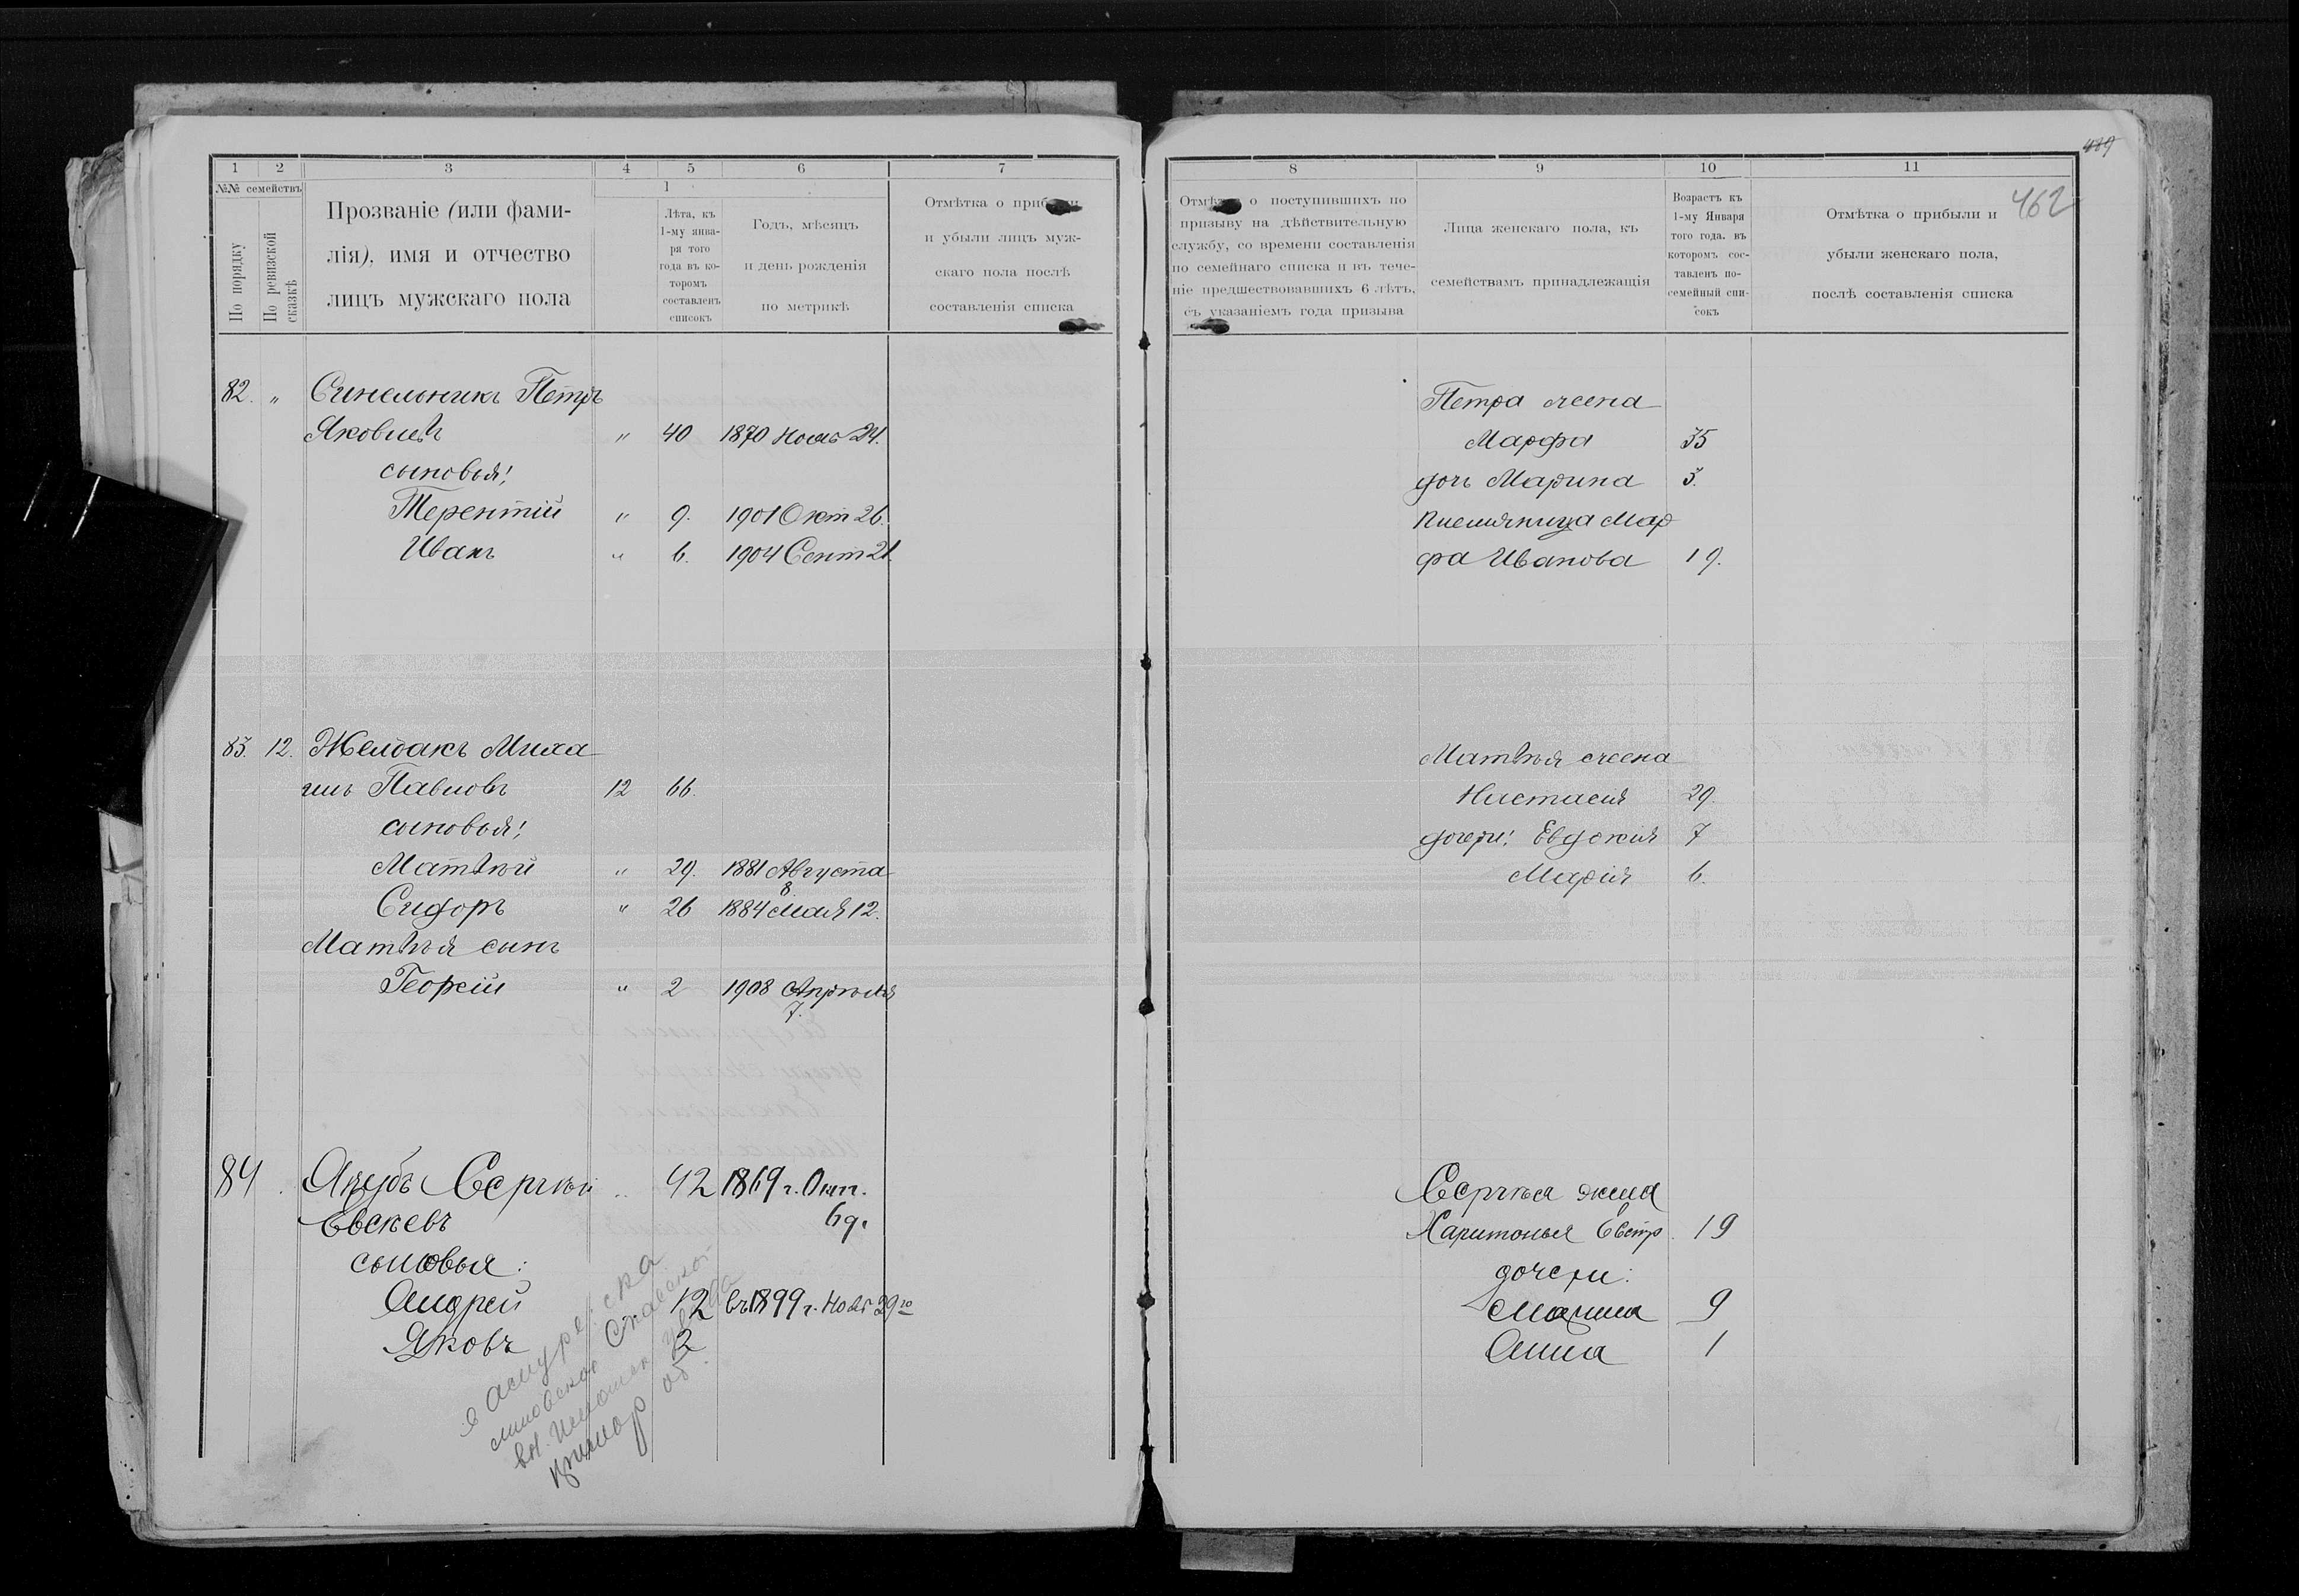 1 2 3 4 5 6 7
№№ семействъ
По порядку
По ревизской сказкѣ
Прозваніе (или фами-
лія), имя и отчество
лицъ мужскаго пола
1
Лѣта, къ
1-му янва-
ря того
года въ ко-
торомъ
составленъ
списокъ
Годъ, мѣсяцъ
и день рожденія
по метрикѣ
Отмѣтка о прибыли
и убыли лицъ муж-
скаго пола послѣ
составленія списка
82. „ Синельникъ Петръ
Яковлевъ „ 40 1870 Ноля 24.
сыновья:
Терентій „ 9. 1901 Окт 26.
Иванъ „ 6. 1904 Сент 21.
83. 12. Желдакъ Миха
илъ Павловъ 12 66.
сыновья:
Матвѣй „ 29. 1881 Августа
8.
Сидоръ „ 26 1884 Мая 12.
Матвѣя сынъ
Георгій „ 2 1908 Апрѣля
7.
84 . Сергѣй „ 42 1869 г. Окт.
6 д.
сыновья:
Андрей 12 въ 1899 г. 29го
Яковъ 2
примор об.
8 9 10 11
489
462
Отмѣтка о поступившихъ по
призыву на дѣйствительную
службу, со времени составленія
по семейнаго списка и въ тече-
ніе предшествовавшихъ 6 лѣтъ,
съ указаніемъ года призыва
Лица женскаго пола, къ
семействамъ принадлежащія
Возрастъ къ
1-му Января
того года. въ
которомъ сос-
тавленъ по-
семейный спи-
сокъ
Отмѣтка о прибыли и
убыли женскаго пола,
послѣ составленія списка
Петра жена
Марфа 35
дочь Марина 3.
племяница Мар
фа Иванова 19.
Матвѣя жена
Настасия 29.
дочери: Евдокія 7
Марія 6.
Сергѣя жена
Харитонья Евстр. 19
дочери:
9
Анна 1